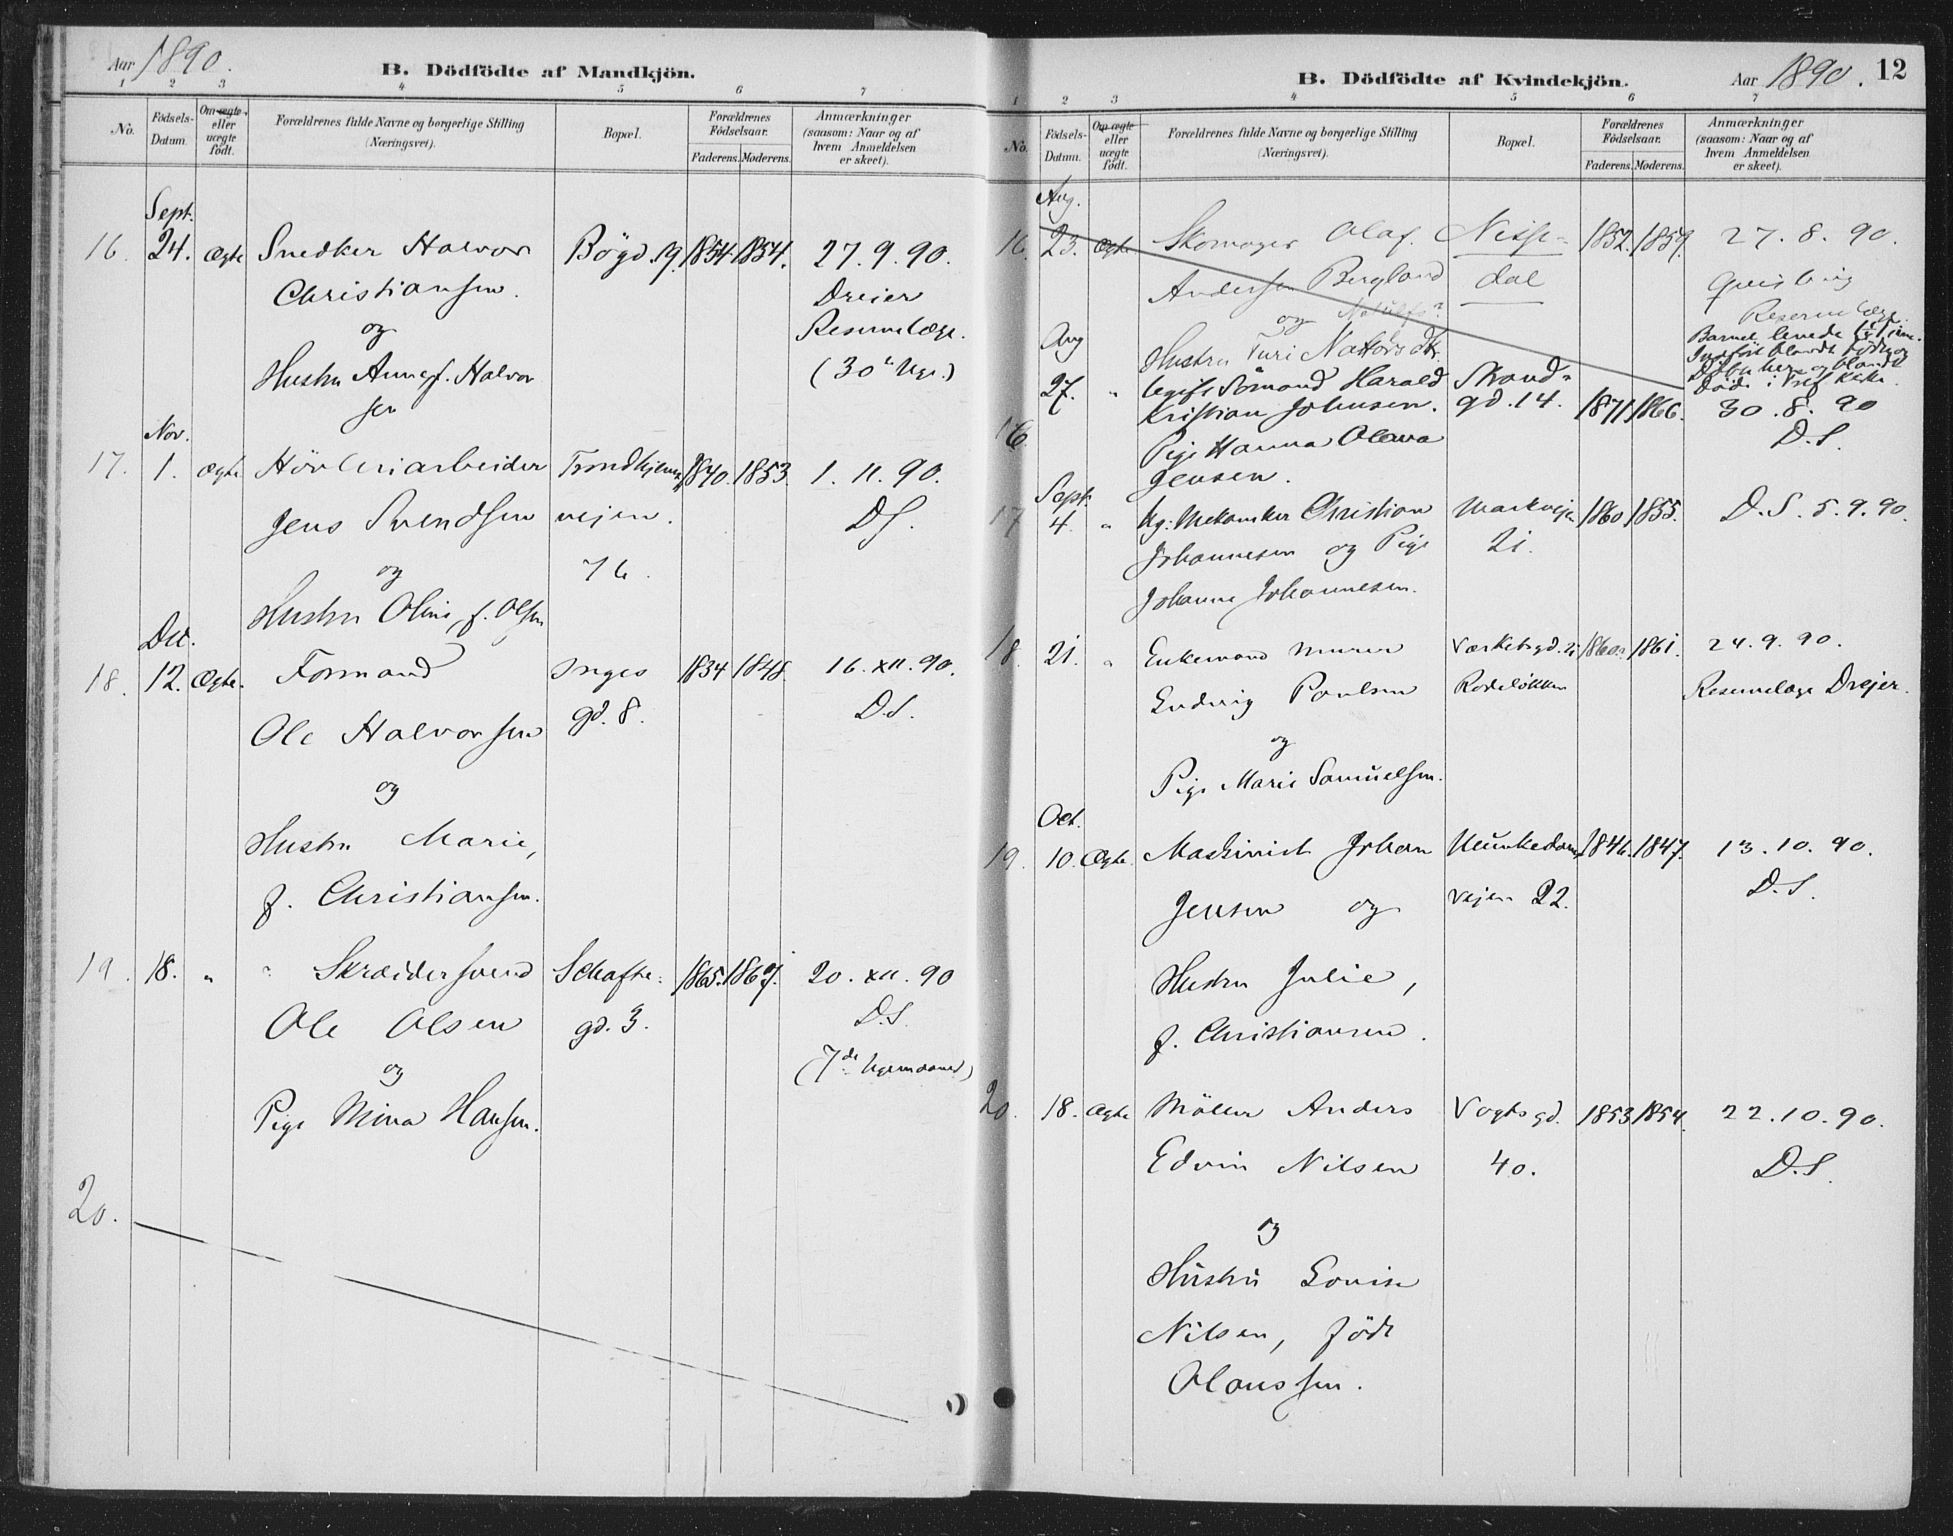 Aar 1890.
B. Dödfödte af Mandkjön.
1 2 3 4 5 6 7
No.
Födsels-
Datum.
Om ægte
eller
uægte
født.
Forældrenes fulde Navne og borgerlige Stilling
(Næringsvei).
Bopæl.
Forældrenes
Födselsaar.
Faderens. Moderens.
Anmærkninger
(saasom: Naar og af
hvem Anmeldelsen
er skeet).
Sept.
16. 24. Ægte Snedker Halvor Bögd. 19 1854 1854. 27.9.90.
Christiansen. Dreier
og Reservelæge.
Hustru Anne f. Halvor
sen
Nov.
17. 1. Ægte Hövleriarbeider Trondhjems 1840. 1853. 1.11.90.
Jens Svendsen veien. D.S.
og 76.
Hustru Oline, f. Olsen
Dec.
18. 12. Ægte. Formand Inges 1834 1848. 16.XII.90.
Ole Halvorsen gd. 8. D.S.
og
Hustru Marie,
f. Christiansen.
19. 18. " Skrædersvend Schafte- 1865. 1867. 20.XII.90
Ole Olsen gd. 3. D.S.
og
Pige Mina Hansen.
20.
B. Dödfödte af Kvindekjön.
Aar 1890. 12
1 2 3 4 5 6 7
No.
Födsels-
Datum.
Om ægte
eller
uægte
født.
Forældrenes fulde Navne og borgerlige Stilling
(Næringsvei).
Bopæl.
Forældrenes
Födselsaar.
Faderens. Moderens.
Anmærkninger
(saasom: Naar og af
hvem Anmeldelsen
er skeet).
Aug.
16. 23. Ægte Skomager Olaf Nisse- 1852. 1859. 27.8.90.
Andersen Bergland dal
og
Hustru Turi
Aug
16 27. " Sömand Harald Strand-
Kristian Johnsen. gd. 14. 1871 1866. 30.8.90
Pige Hanna Olava D.S.
Jensen.
Sept.
17 4. " Mekaniker Christian Markvejen 1860 1855. D.S. 5.9.90.
Johannesen og Pige 21.
Johanne Johannesen.
18. 21. " Enkemand Murer 1860 1861. 24.9.90.
Ludvig Poulsen Rodeløkken Reservelæge Drejer.
og
Pige Marie Samuelsen.
Oct.
19. 10. Ægte. Maskinist Johan Munkedams 1846. 1847. 13.10.90.
Jensen og vejen 22. D.S.
Hustru Julie,
f. Christiansen.
20. 18. Ægte Möller Anders Vogtsgd. 1853 1854. 22.10.90.
Edvin Nilsen 40. D.S.
og
Hustru Lovise
Nilsen, född
Olaussen.